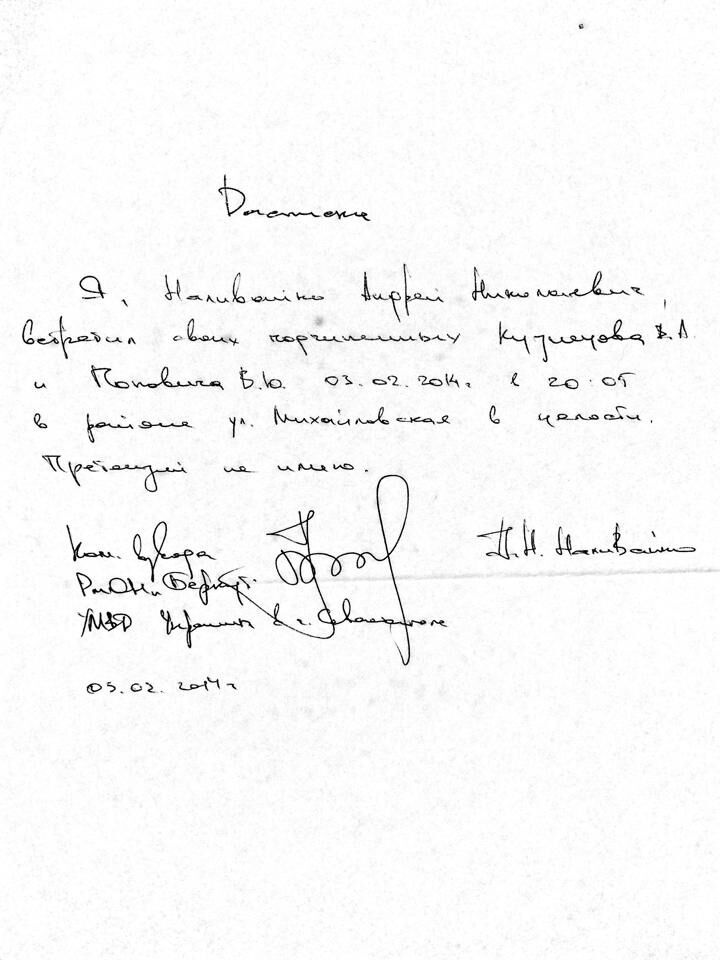 Расписка
Я, Наливайко Андрей Николаевич,
встретил своих подчиненных Кузнецова В.А.
и Поповича В.Ю. 03.02.2014г. в 20:05
в районе ул. Михайловская в целости.
Претензий не имею.
Ком. взвода А.Н. Наливайко
"Беркут"
УМВД Украины в г. Севастополе
03.02.2014г